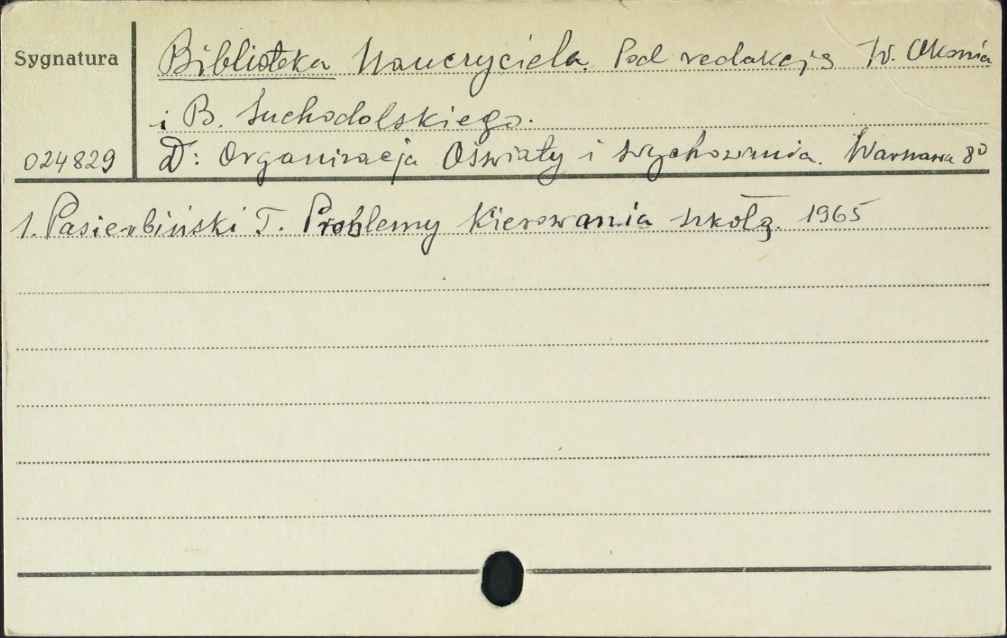 Sygnatura
Biblioteka Nauczyciela. Pod redakcją W. Okonia
i B. Suchodolskiego.
024829
D: Organizacja Oświaty i wychowania. Warszawa 8º
1. Pasierbiński T. Problemy kierowania szkołą. 1965